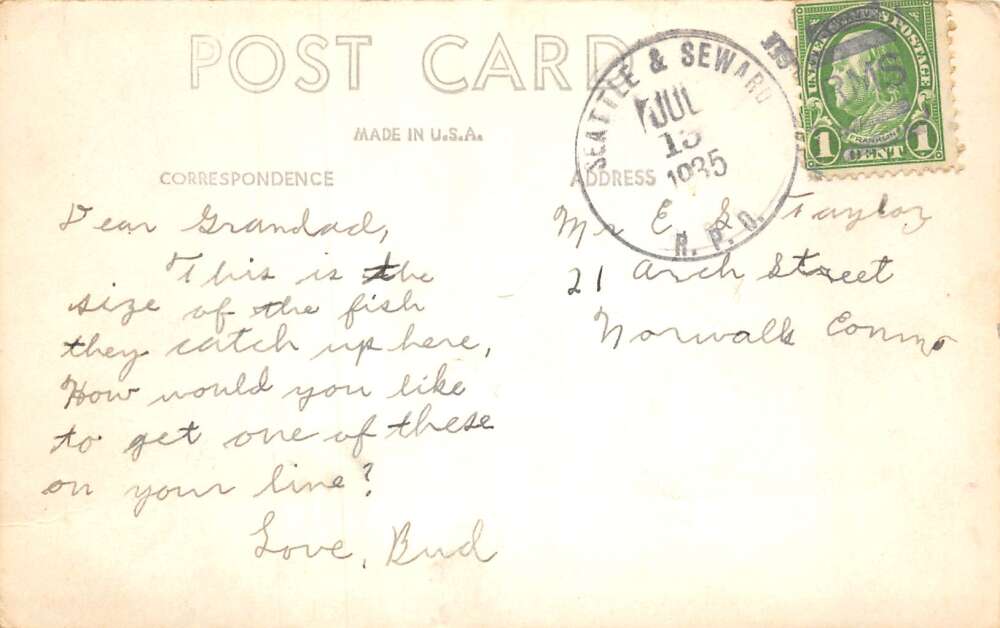 POST CARD
MADE IN U.S.A.
CORRESPONDENCE
ADDRESS
SEATTLE & SEWARD
JUL
13
1935
R. P. O.
RMS
UNITED STATES POSTAGE
FRANKLIN
1 CENT 1
Dear Grandad,
This is the
size of the fish
they catch up here,
How would you like
to get one of these
on your line?
Love, Bud
Mr E. S. Taylor
21 Arch Street
Norwalk Conn.